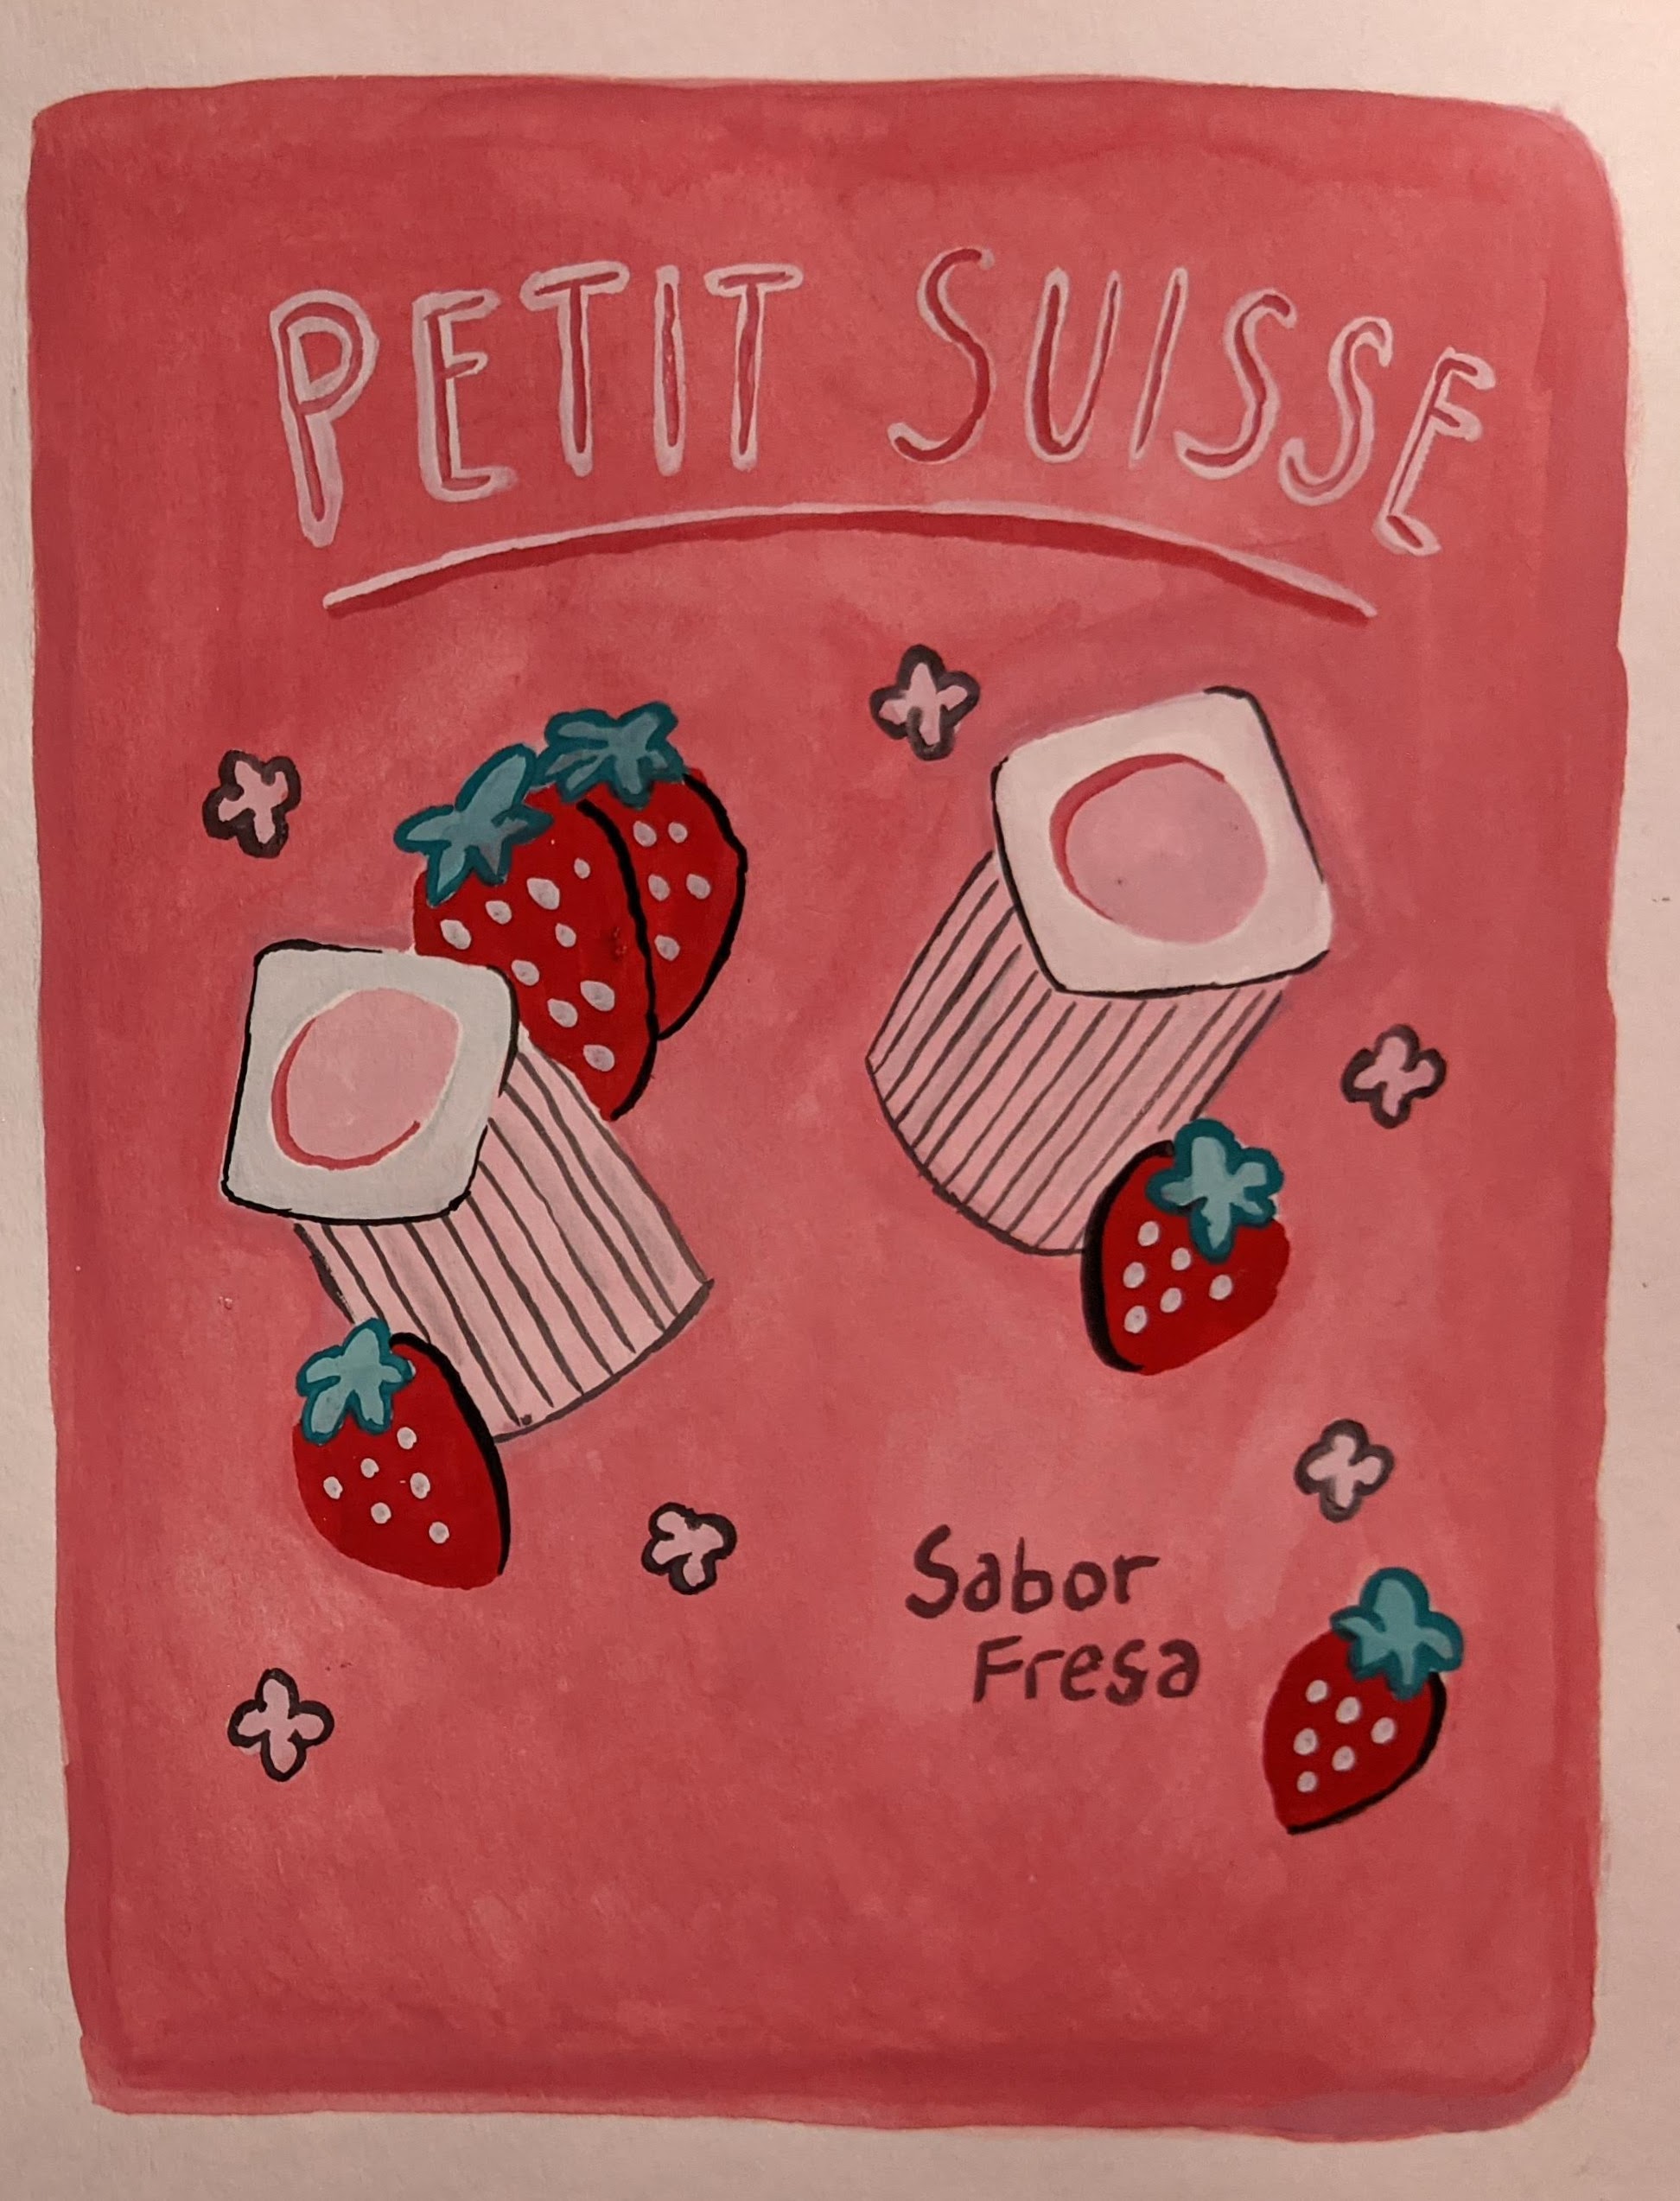 PETIT SUISSE
Sabor
Fresa